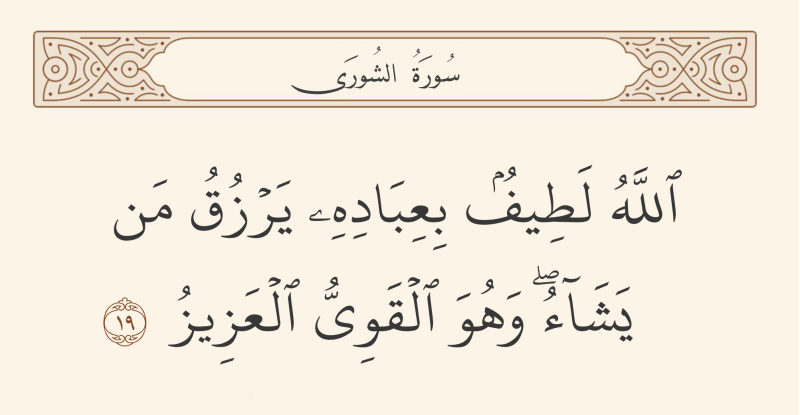 سُورَةُ الشُورَى
ٱللَّهُ لَطِيفُۢ بِعِبَادِهِۦ يَرْزُقُ مَن
يَشَآءُ ۖ وَهُوَ ٱلْقَوِىُّ ٱلْعَزِيزُ ١٩